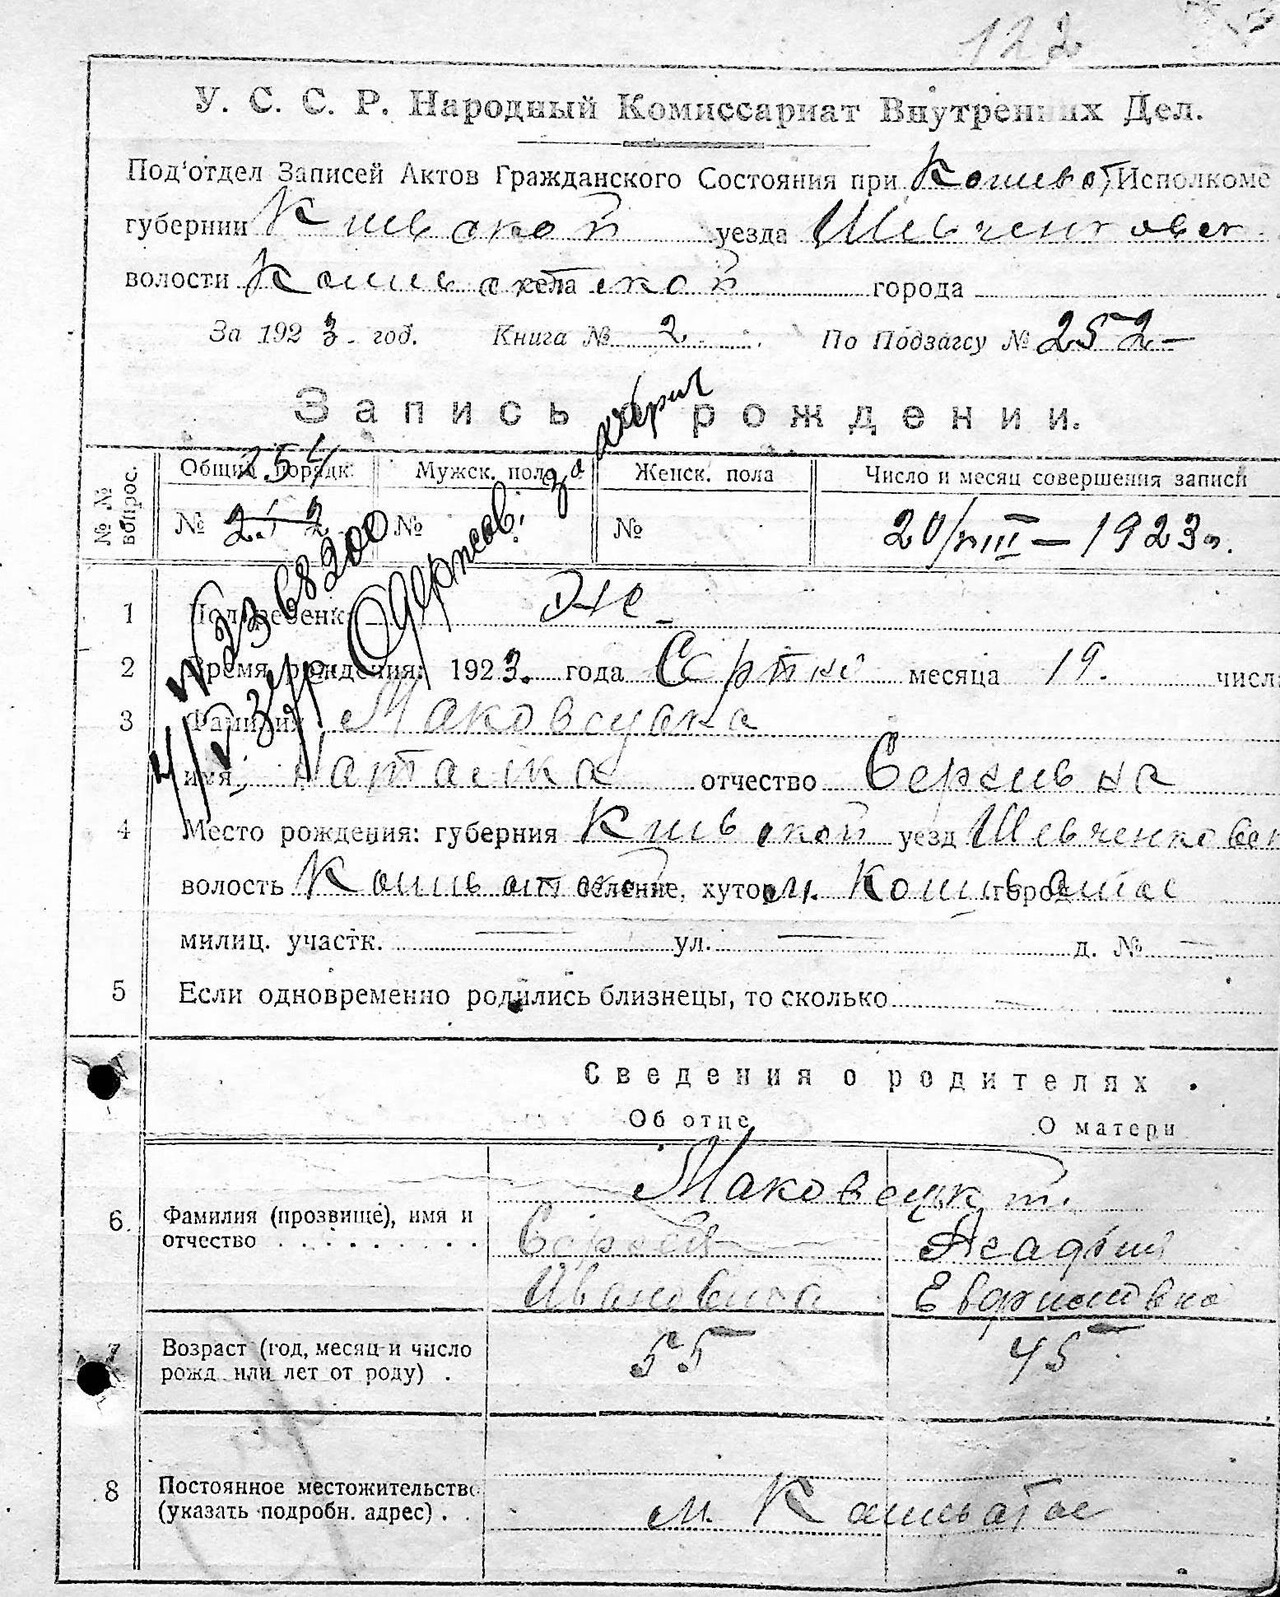 122
У. С. С. Р. Народный Комиссариат Внутренних Дел.
Под'отдел Записей Актов Гражданского Состояния при Кошеват Исполкоме
губернии Киевской уезда Шевченковск.
волости Кошеватской села города
За 1923 год. Книга № 2. По Подзагсу № 252
Запись о рождении.
№№ вопрос. Общий порядк. Мужск. пола Женск. пола Число и месяц совершения записи
254
№ 252 № № 20/VIII — 1923 г.
1 Пол ребенка Же
2 Время рождения: 1923 года месяца 19. числа
3 Фамилия Маковецька
имя, Наталка отчество Сергивна
4 Место рождения: губерния Киевской уезд Шевченковск
волость Кошеватской селение, хутор м. Кошевате город
милиц. участк. — ул. — д. № —
5 Если одновременно родились близнецы, то сколько —
Сведения о родителях.
Об отце О матери
6. Фамилия (прозвище), имя и отчество
Маковецкі
Сергей Агафия
Иванович
7 Возраст (год, месяц и число рожд. или лет от роду) . 55 45
8 Постоянное местожительство (указать подробн. адрес) . . м. Кошевате